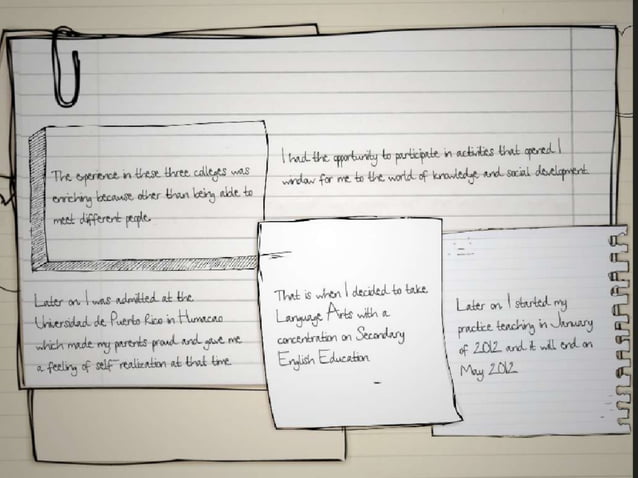 The experience in these three colleges was
enriching because other than being able to
meet different people.
I had the opportunity to participate in activities that opened 1
window for me to the world of knowledge and social development.
Later on I was admitted at the
Universidad de Puerto Rico in Humacao
which made my parents proud and gave me
a feeling of self-realization at that time
That is when I decided to take
Language Arts with a
concentration on Secondary
English Education
Later on I started my
practice teaching in January
of 2012 and it will end on
May 2012